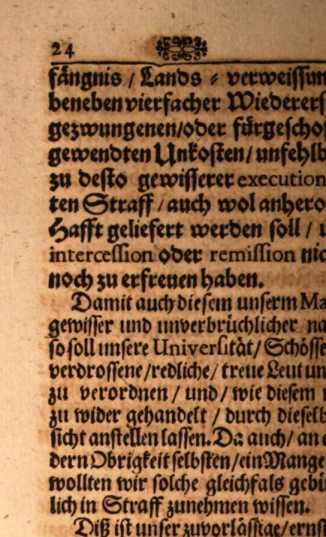 24
fängnis / Lands ⸗ verweissun
beneben vierfacher Wiederers
gezwungenen/oder fürgescho
gewendten Unkosten/unfehlb
zu desto gewisserer execution
ten Straff/auch wol anhero
Hafft geliefert werden soll /
intercession oder remission nic
noch zu erfreuen haben.
Damit auch diesem unserm Ma
gewisser und unverbrüchlicher na
so soll unsere Universität/Schösse
verdrossene/redliche/treue Leut un
zu verordnen / und/wie diesem
zu wider gehandelt / durch dieselb
sicht anstellen lassen. Da auch/an
dern Obrigkeit selbsten/ein Mange
wollten wir solche gleichfals gebü
lich in Straff zunehmen wissen.
Diß ist unser zuvorlässige/ernst